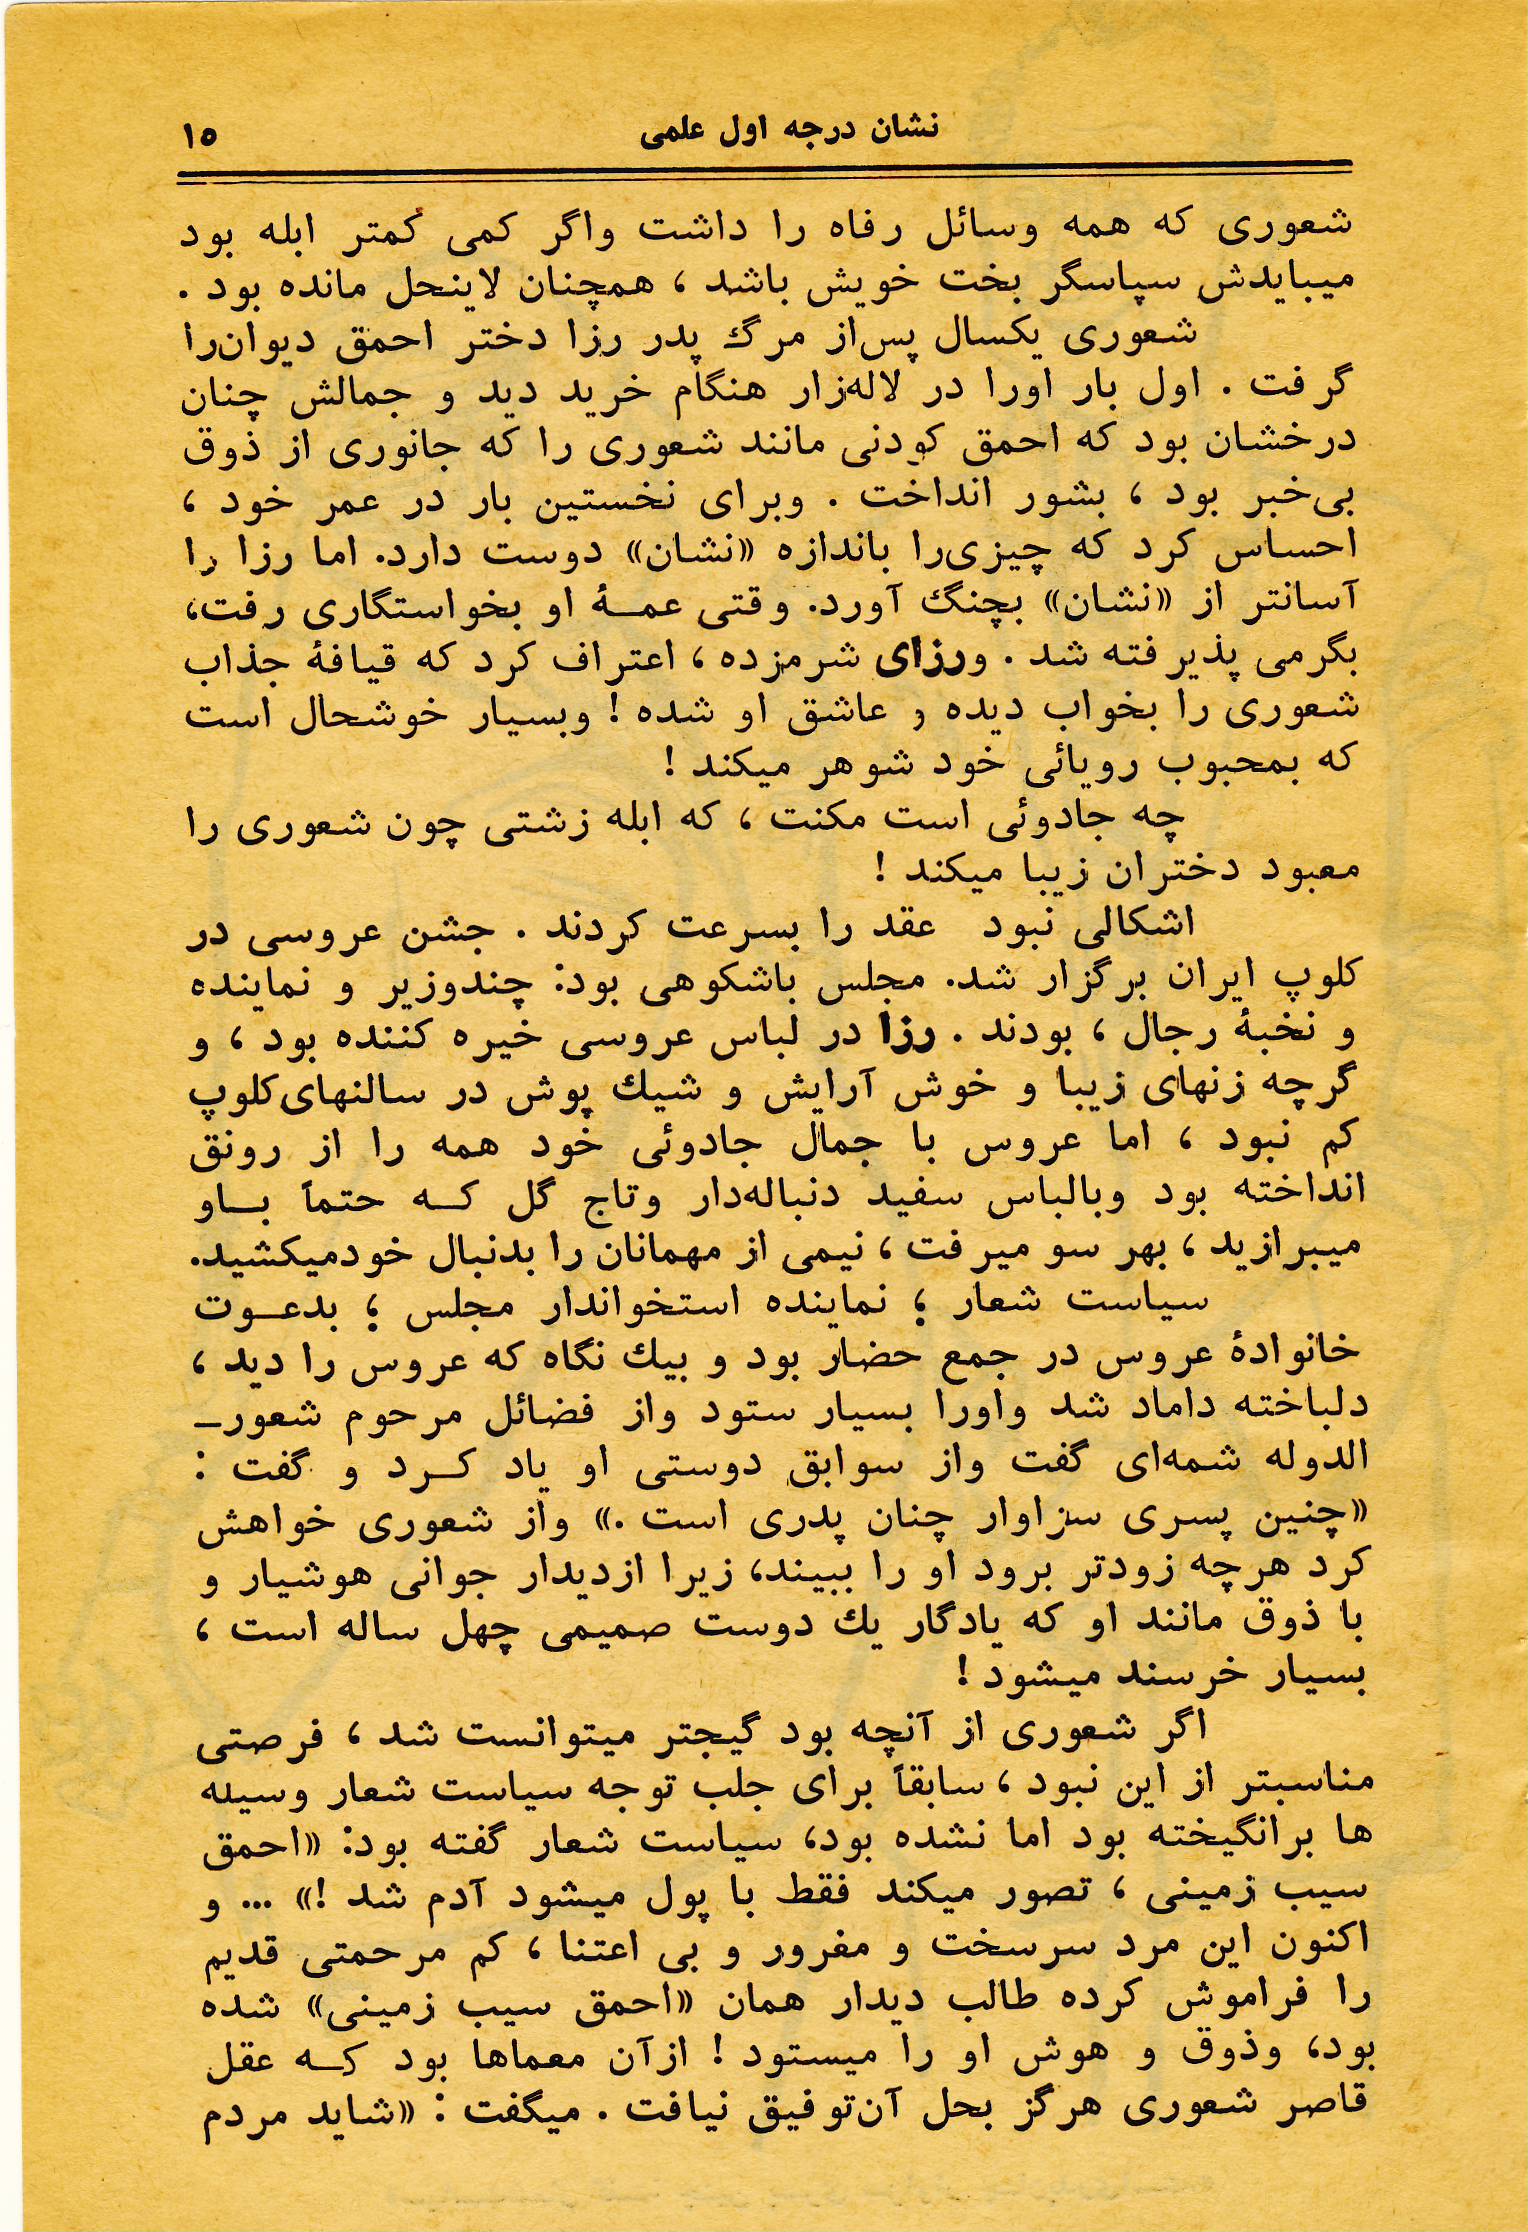 نشان درجه اول علمی ۱۵
شعوری که همه وسائل رفاه را داشت واگر کمی کمتر ابله بود
میبایدش سپاسگر بخت خویش باشد ، همچنان لاینحل مانده بود .
شعوری یکسال پس‌از مرگ پدر رزا دختر احمق دیوان‌را
گرفت . اول بار اورا در لاله‌زار هنگام خرید دید و جمالش چنان
درخشان بود که احمق کودنی مانند شعوری را که جانوری از ذوق
بی‌خبر بود ، بشور انداخت . وبرای نخستین بار در عمر خود ،
احساس کرد که چیزی‌را باندازه «نشان» دوست دارد. اما رزا را
آسانتر از «نشان» بچنگ آورد. وقتی عمـۀ او بخواستگاری رفت،
بگرمی پذیرفته شد . ورزای شرمزده ، اعتراف کرد که قیافۀ جذاب
شعوری را بخواب دیده و عاشق او شده ! وبسیار خوشحال است
که بمحبوب رویائی خود شوهر میکند !
چه جادوئی است مکنت ، که ابله زشتی چون شعوری را
معبود دختران زیبا میکند !
اشکالی نبود عقد را بسرعت کردند . جشن عروسی در
کلوپ ایران برگزار شد. مجلس باشکوهی بود: چندوزیر و نماینده
و نخبۀ رجال ، بودند . رزا در لباس عروسی خیره کننده بود ، و
گرچه زنهای زیبا و خوش آرایش و شیك پوش در سالنهای‌کلوپ
کم نبود ، اما عروس با جمال جادوئی خود همه را از رونق
انداخته بود وبالباس سفید دنباله‌دار وتاج گل کـه حتماً بـاو
میبرازید ، بهر سو میرفت ، نیمی از مهمانان را بدنبال خودمیکشید.
سیاست شعار ؛ نماینده استخواندار مجلس ؛ بدعـوت
خانوادۀ عروس در جمع حضار بود و بیك نگاه که عروس را دید ،
دلباخته داماد شد واورا بسیار ستود واز فضائل مرحوم شعور-
الدوله شمه‌ای گفت واز سوابق دوستی او یاد کـرد و گفت :
«چنین پسری سزاوار چنان پدری است .» واز شعوری خواهش
کرد هرچه زودتر برود او را ببیند، زیرا ازدیدار جوانی هوشیار و
با ذوق مانند او که یادگار یك دوست صمیمی چهل ساله است ،
بسیار خرسند میشود !
اگر شعوری از آنچه بود گیجتر میتوانست شد ، فرصتی
مناسبتر از این نبود ، سابقاً برای جلب توجه سیاست شعار وسیله
ها برانگیخته بود اما نشده بود، سیاست شعار گفته بود: «احمق
سیب زمینی ، تصور میکند فقط با پول میشود آدم شد !» ... و
اکنون این مرد سرسخت و مغرور و بی اعتنا ، کم مرحمتی قدیم
را فراموش کرده طالب دیدار همان «احمق سیب زمینی» شده
بود، وذوق و هوش او را میستود ! ازآن معماها بود کـه عقل
قاصر شعوری هرگز بحل آن‌توفیق نیافت . میگفت : «شاید مردم